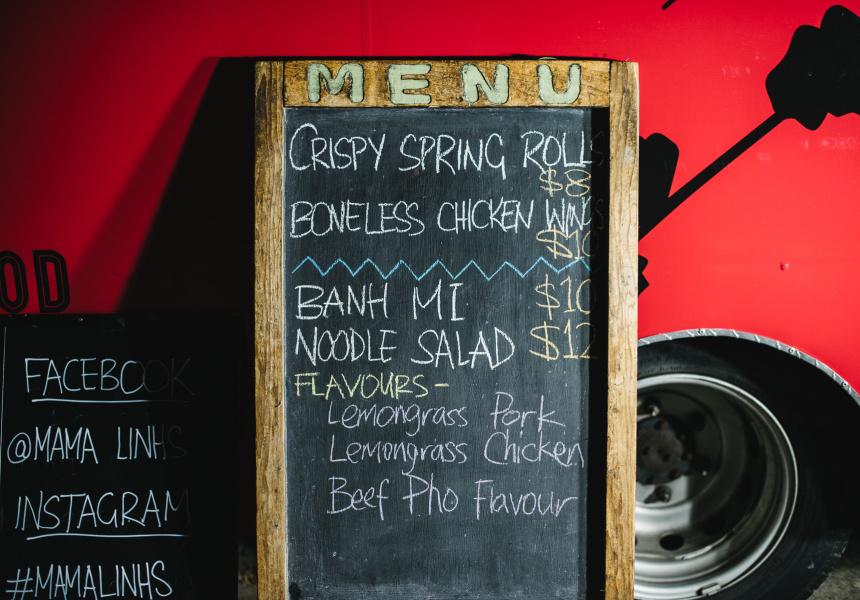 MENU
CRISPY SPRING ROLLS
$8
BONELESS CHICKEN WINGS
$10
BANH MI $10
NOODLE SALAD $12
FLAVOURS-
Lemongrass Pork
Lemongrass Chicken
Beef Pho Flavour
OD
FACEBOOK
@MAMA LINHS
INSTAGRAM
#MAMALINHS